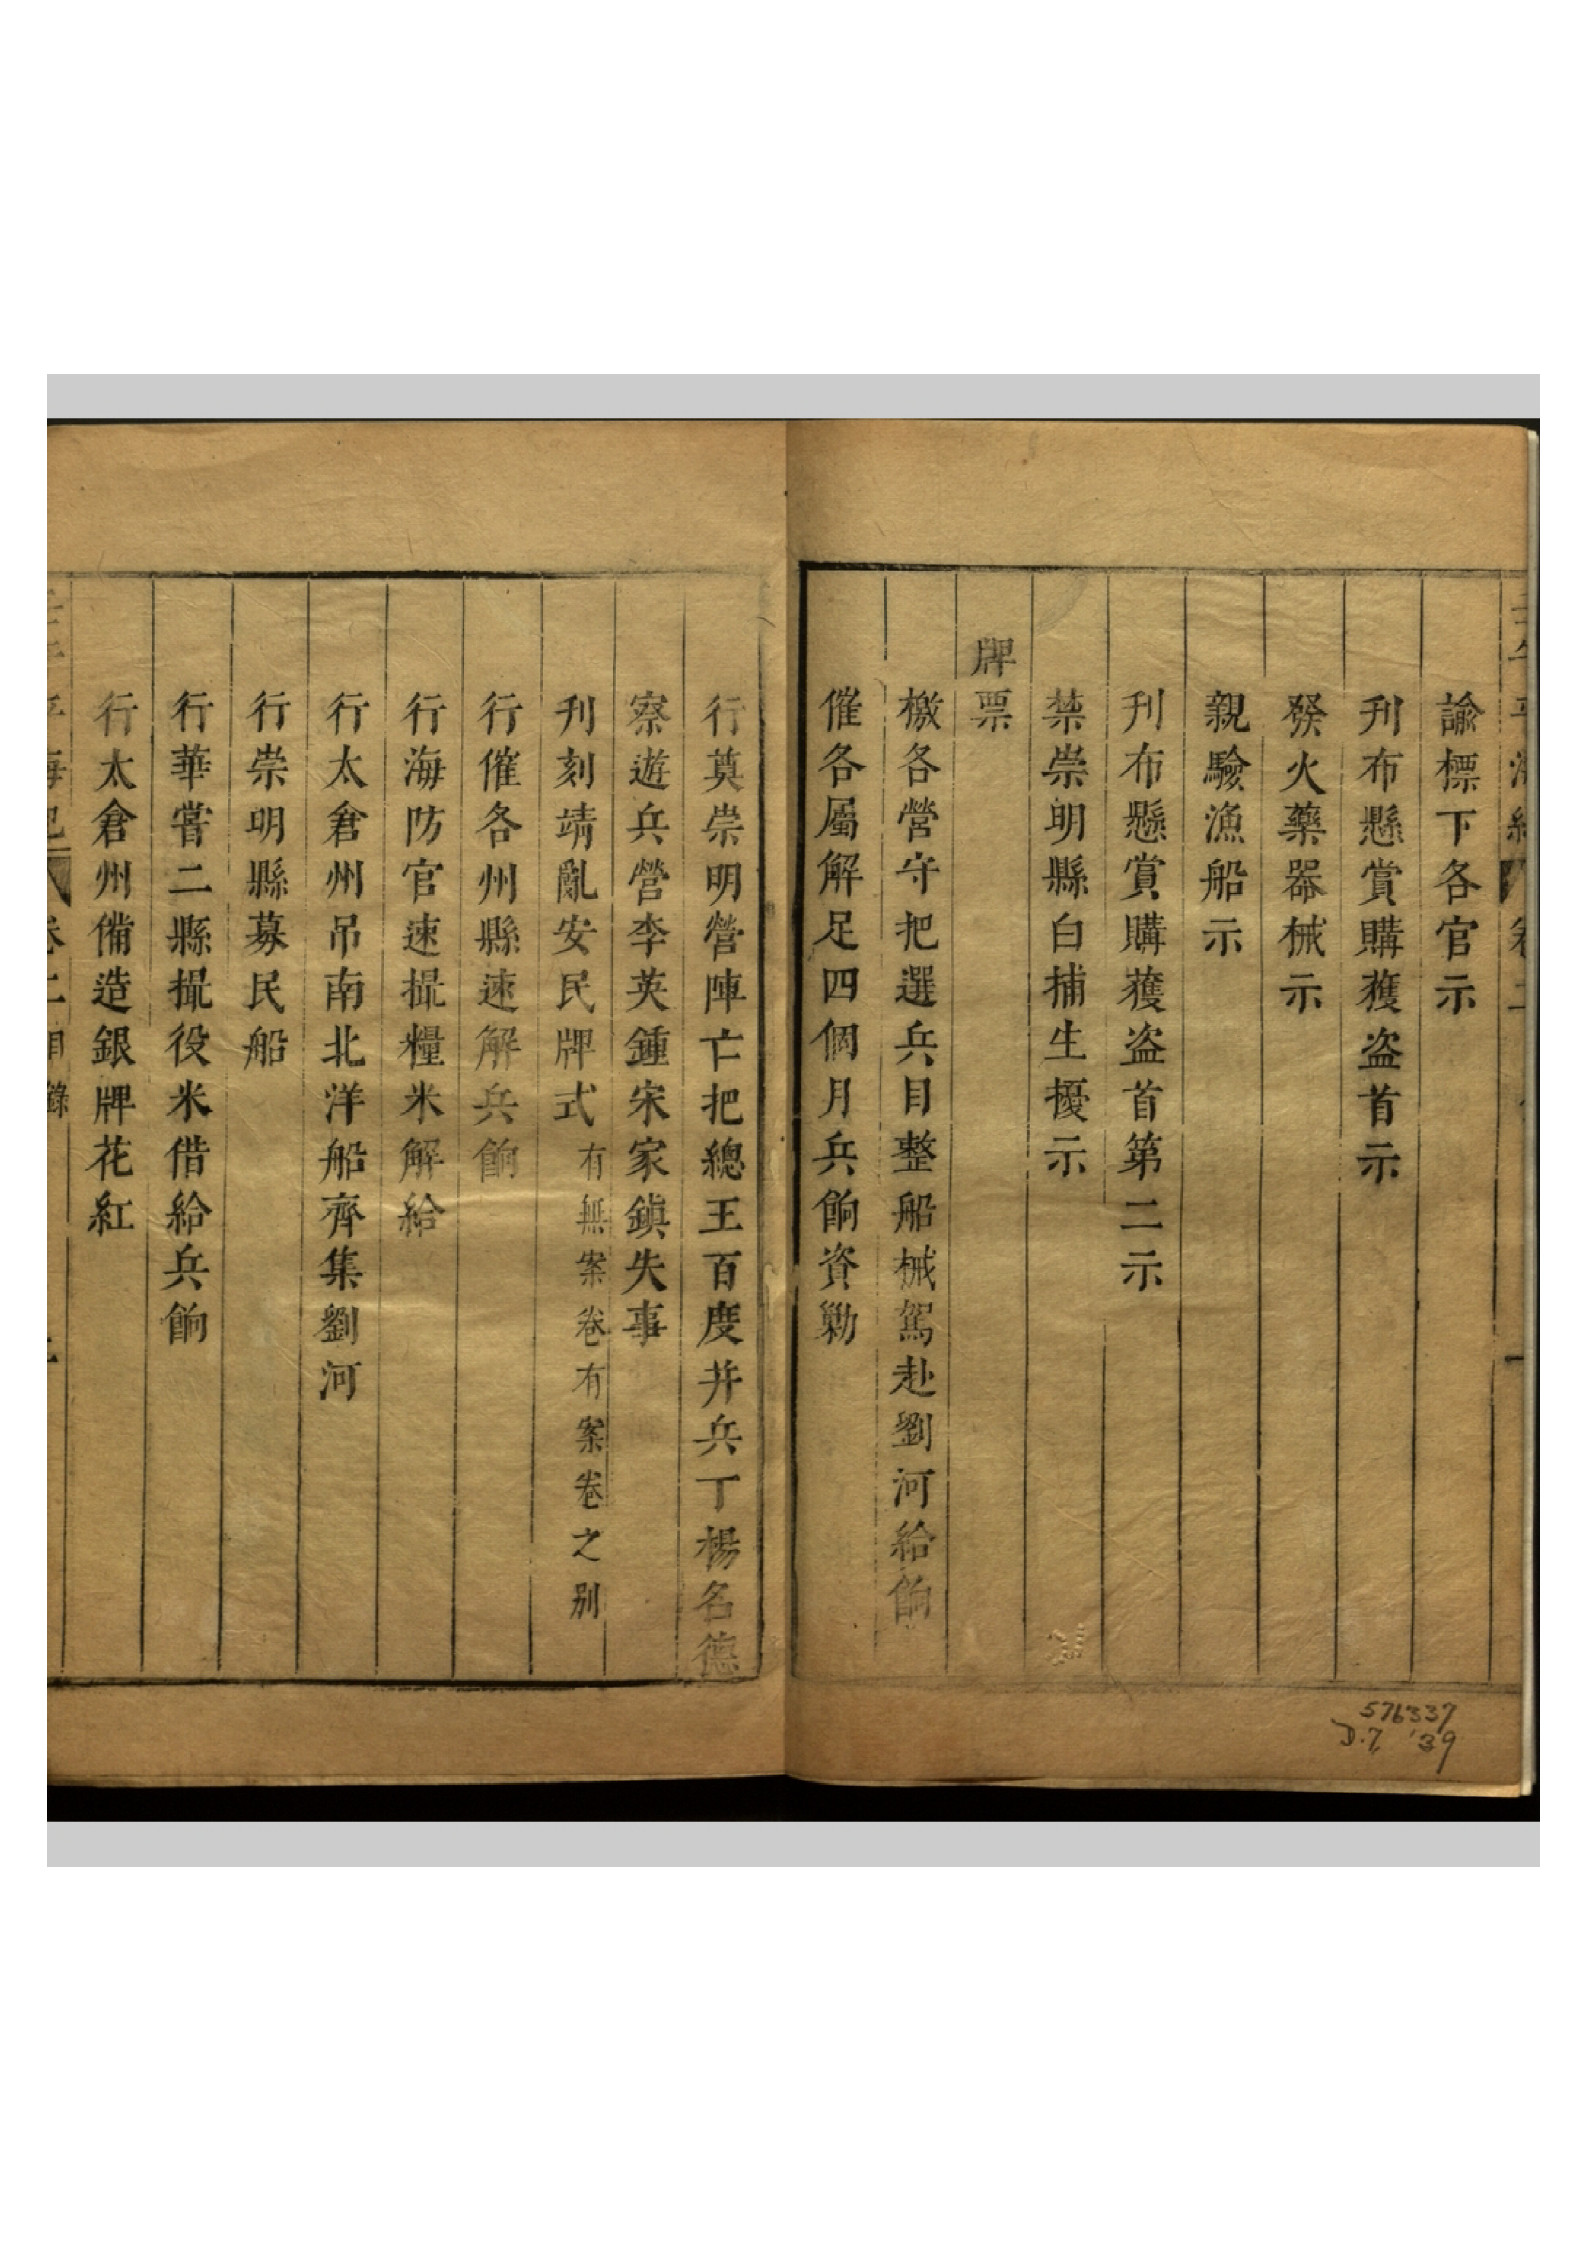 諭標下各官示
刋布懸賞購獲盗首示
發火藥器械示
親驗漁船示
刋布懸賞購獲盗首第二示
禁崇明縣白捕生擾示
牌票
檄各營守把選兵目整船械駕赴劉河給餉
催各屬解足四個月兵餉資勦
576337
D.7, '39
行奠崇明營陣亡把總王百度并兵丁楊名德
察遊兵營李英鍾宋家鎭失事
刋刻靖亂安民牌式有無案卷有案卷之别
行催各州縣速解兵餉
行海防官速撮糧米解給
行太倉州吊南北洋船齊集劉河
行崇明縣募民船
行華嘗二縣撮役米借給兵餉
行太倉州備造銀牌花紅